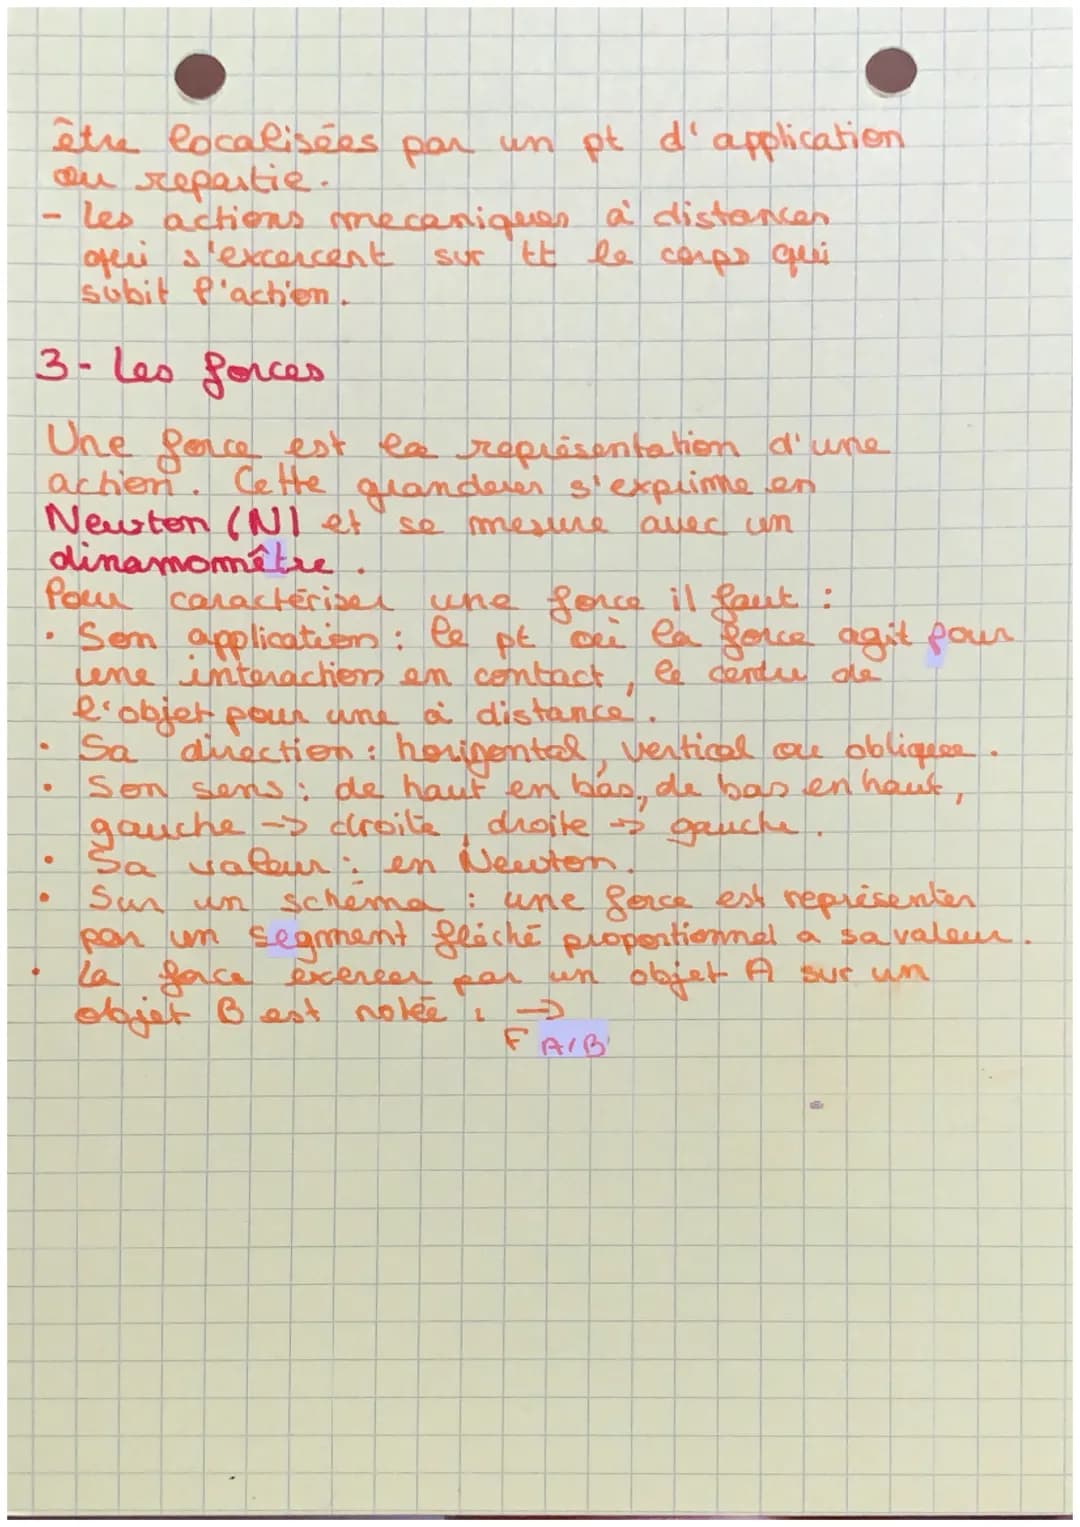 être localisées par un pt d'application
ou repartie.
- les actions mecaniques à distances
qui s'excercent sur tt le corps qui
subit l'action.
3- Les forces
Une force est la représentation d'une
action. Cette grandeur s'exprime en
Newton (N) et se mesure avec un
dinamomêtre.
Pour caractériser une force il faut :
• Son application : le pt où la force agit pour
une interaction en contact, le centre de
l'objet pour une à distance.
• Sa direction : horizontal, vertical ou oblique.
• Son sens : de haut en bas, de bas en haut,
gauche -> droite, droite -> gauche.
• Sa valeur : en Newton.
• Sur un schéma : une force est représenter
par un segment fléché proportionnel a sa valeur.
• La force exercer par un objet A sur un
objet B est notée : →
F A/B